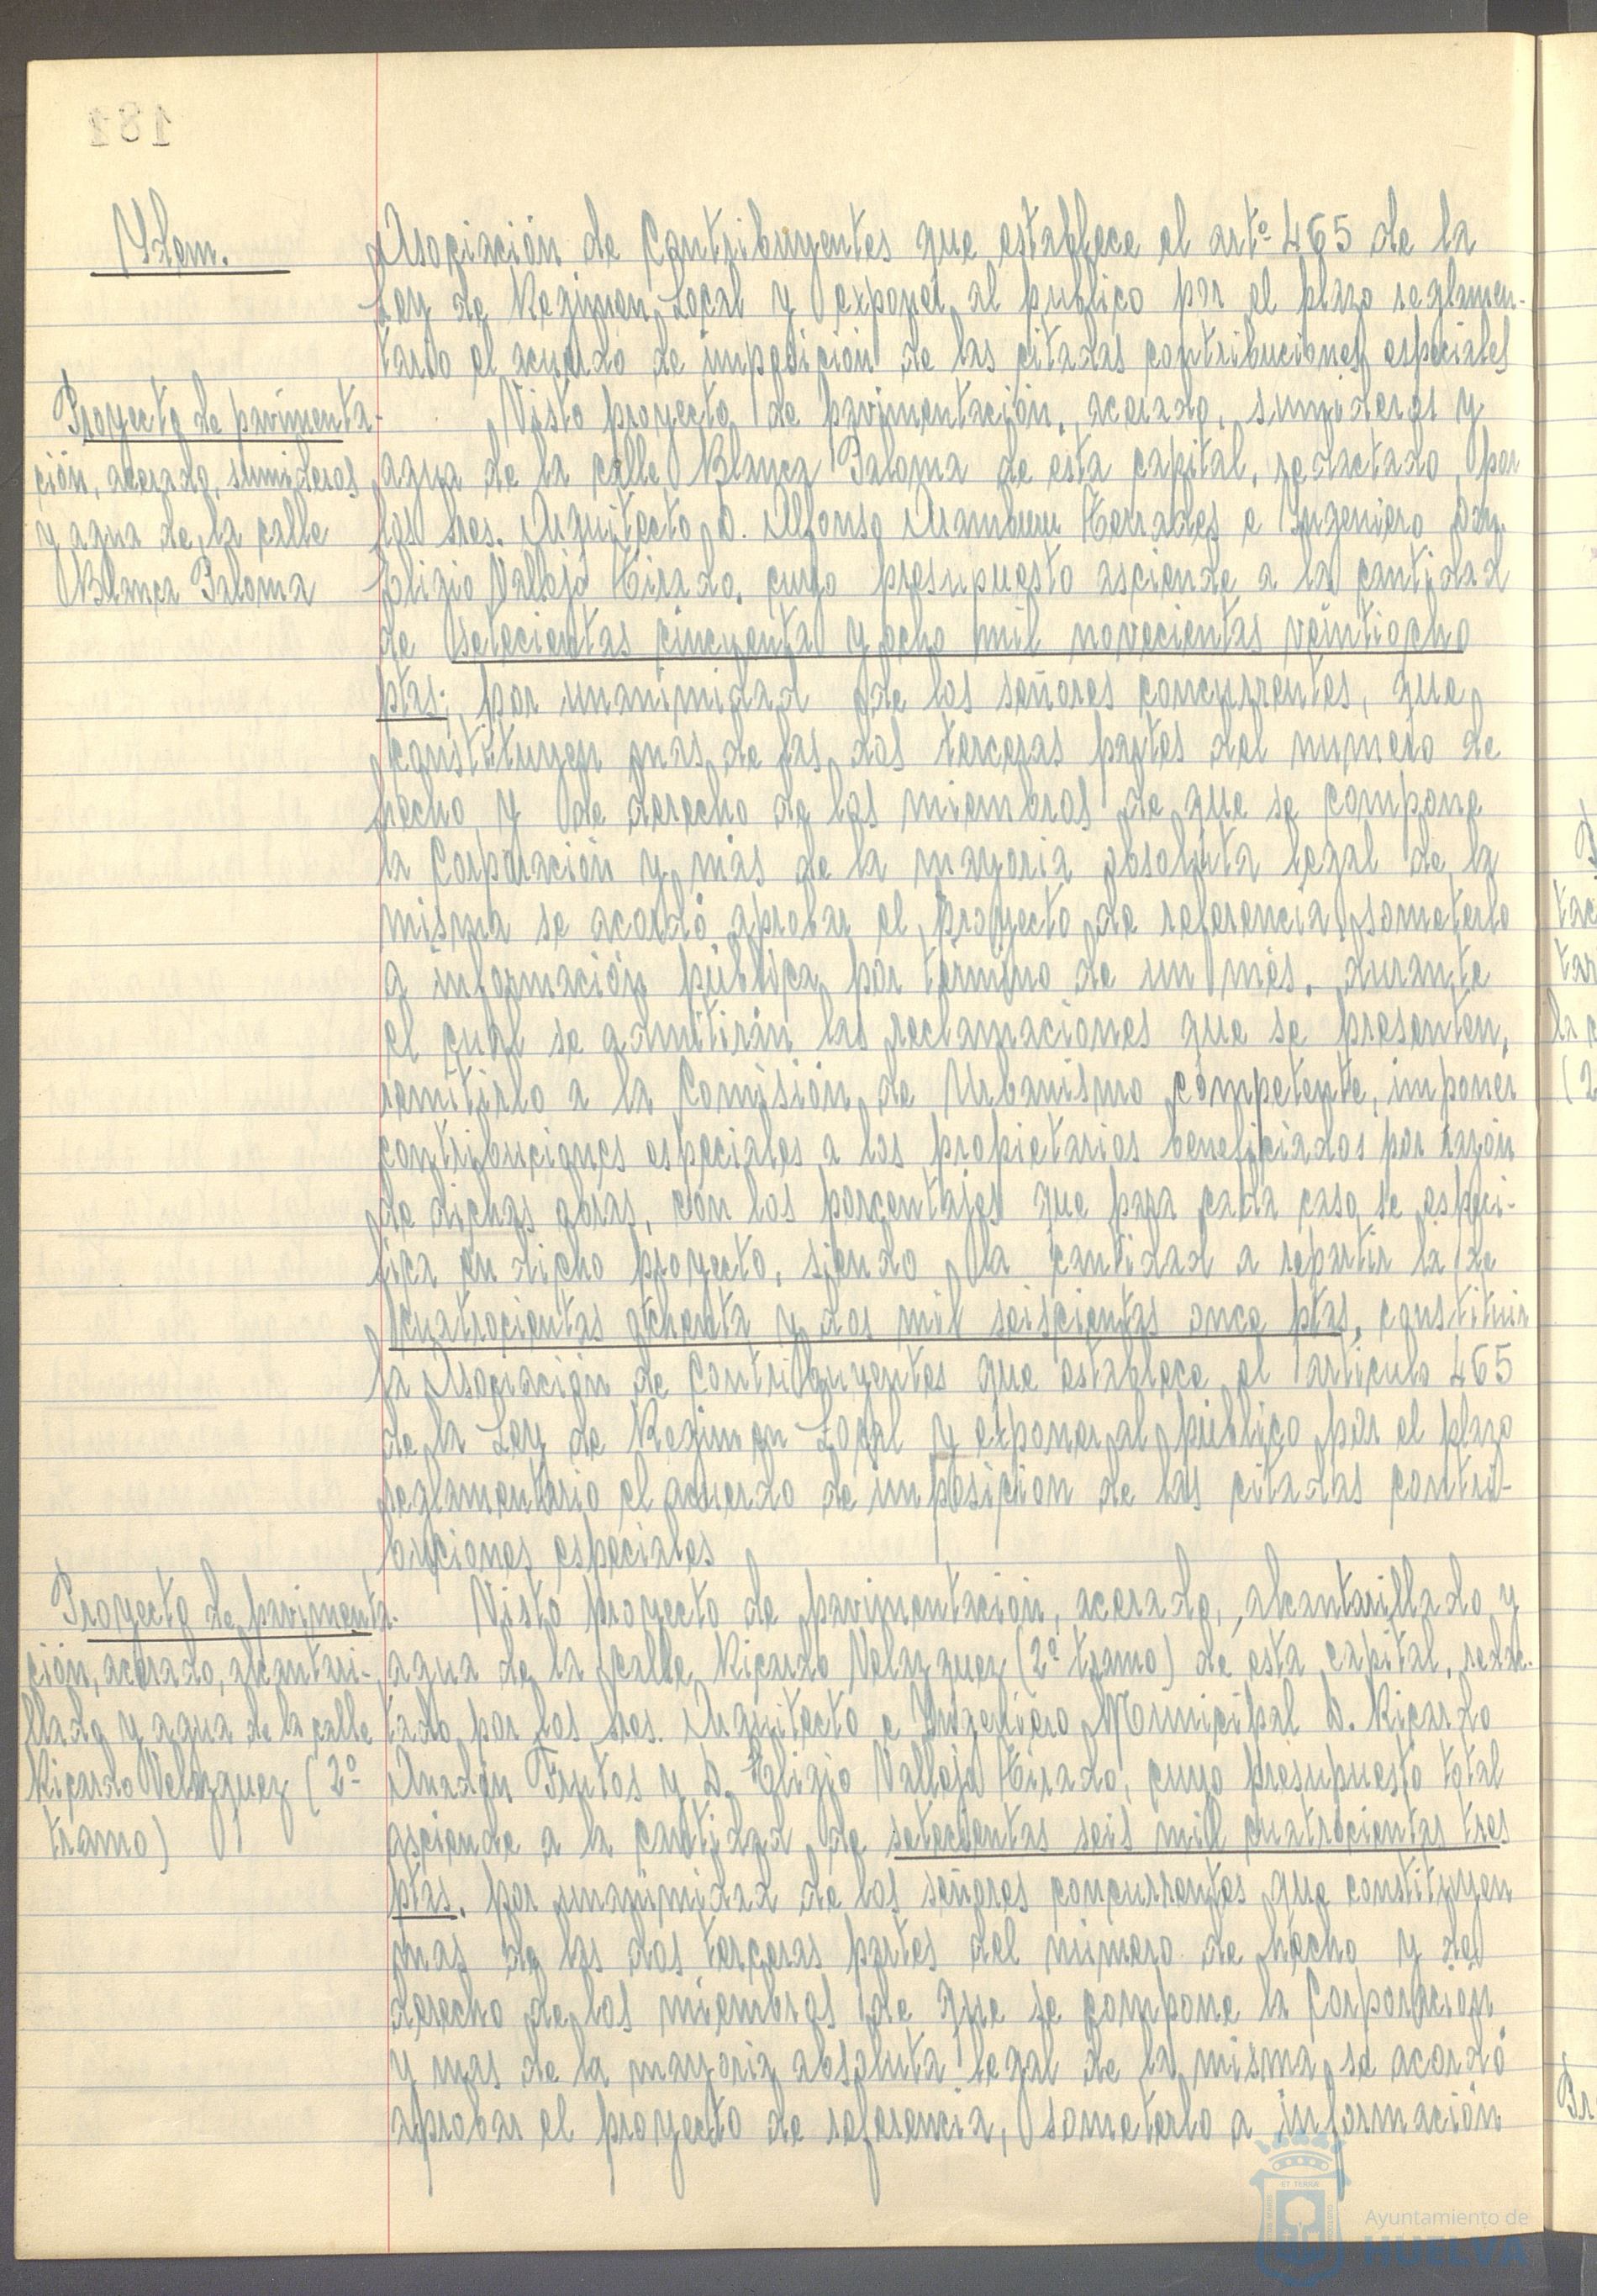 181
Ydem.
Asociación de Contribuyentes que establece el artº 465 de la
Ley de Regimen Local y exponer al publico por el plazo reglamen-
tario el acuerdo de imposición de las citadas contribuciones especiales
Proyecto de pavimenta-
ción, acerado, sumideros
y agua de la calle
Blanca Paloma
Visto proyecto de pavimentación, acerado, sumideros y
agua de la calle Blanca Paloma de esta capital, redactado por
los sres. Arquitecto D. Alfonso Aramburu Terrades e Ingeniero Don
Eligio Vallejo Tirado, cuyo presupuesto asciende a la cantidad
de setecientas cincuenta y ocho mil novecientas veintiocho
ptas; por unanimidad de los señores concurrentes, que
constituyen mas de las dos terceras partes del numero de
hecho y de derecho de los miembros de que se compone
la Corporación y más de la mayoria absoluta legal de la
misma se acordó aprobar el proyecto de referencia, someterlo
a información pública por termino de un mes, durante
el cual se admitirán las reclamaciones que se presenten,
remitirlo a la Comisión de Urbanismo competente, imponer
contribuciones especiales a los propietarios beneficiados por razón
de dichas obras, con los porcentajes que para cada caso se especi-
fica en dicho proyecto, siendo la cantidad a repartir la de
cuatrocientas ochenta y dos mil seiscientas once ptas, constituir
la Asociación de Contribuyentes que establece el articulo 465
de la Ley de Regimen Local y exponer al público por el plazo
reglamentario el acuerdo de imposición de las citadas contri-
buciones especiales
Proyecto de pavimenta-
ción, acerado, alcantari-
llado y agua de la calle
Ricardo Velazquez (2º
tramo)
Visto proyecto de pavimentación, acerado, alcantarillado y
agua de la calle Ricardo Velazquez (2º tramo) de esta capital, redac-
tado por los sres. Arquitecto e Ingeniero Municipal D. Ricardo
Anadón Frutos y D. Eligio Vallejo Tirado, cuyo presupuesto total
asciende a la cantidad de setecientas seis mil cuatrocientas tres
ptas, por unanimidad de los señores concurrentes que constituyen
mas de las dos terceras partes del número de hecho y de
derecho de los miembros de que se compone la Corporación
y mas de la mayoria absoluta legal de la misma, se acordó
aprobar el proyecto de referencia, someterlo a información
Ayuntamiento de
HUELVA